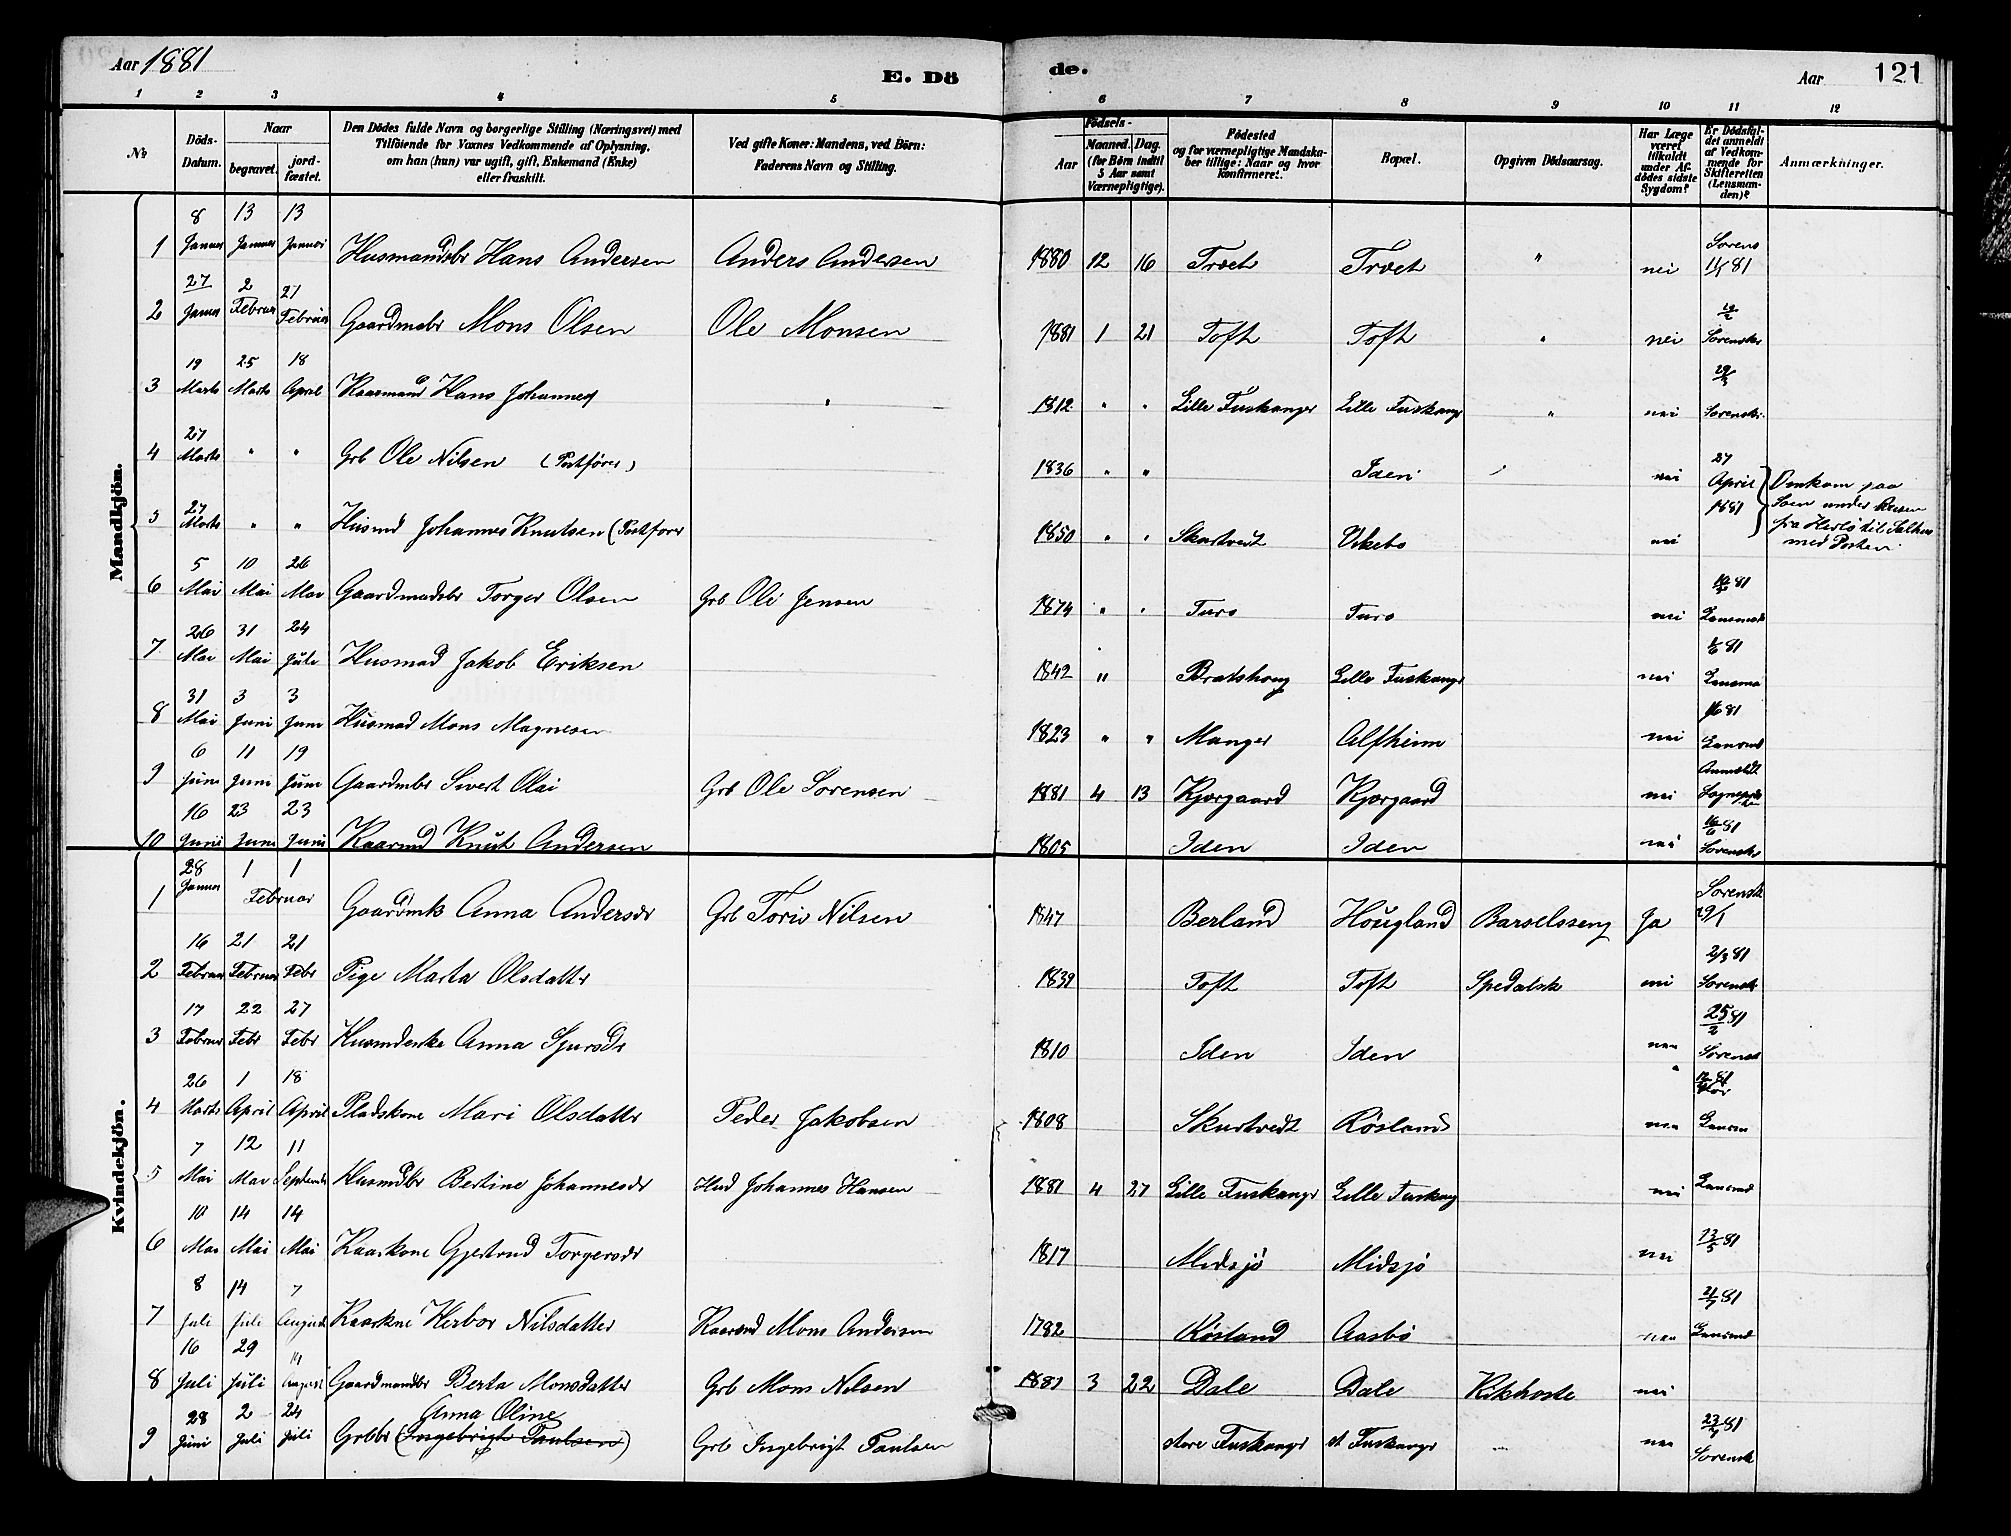 Aar 1881 E. Dö de. Aar 121
1 2 3 4 5 6 7 8 9 10 11 12
№ Döds-Datum. Naar begravet. jord-fæstet. Den Dödes fulde Navn og borgerlige Stilling (Næringsvei) med Tilföiende for Voxnes Vedkommende af Oplysning, om han (hun) var ugift, gift, Enkemand (Enke) eller fraskilt. Ved gifte Koner: Mandens, ved Börn: Faderens Navn og Stilling. Födsels- Aar Maaned. Dag. (for Börn indtil 5 Aar samt Værnepligtige). Födested og for værnepligtige Mandska-ber tillige: Naar og hvor konfirmeret. Bopæl. Opgiven Dödsaarsag. Har Læge været tilkaldt under Af-dödes sidste Sygdom? Er Dödsfal-det anmeldt af Vedkom-mende for Skifteretten (Lensman-den)? Anmærkninger.
Mandkjön.
1 8 Januar 13 Januar 13 Januar Husmandsbr Hans Andersen Anders Andersen 1880 12 16 Troet Troet " nei Sorens 81
2 27 Januar 2 Februar 21 Februar Gaardmsbr Mons Olsen Ole Monsen 1881 1 21 Toft Toft " nei Sorenskr
3 19 Marts 25 Marts 18 April Kaarmand Hans Johannes " 1812 " " Lille Fuskanger Lille Fuskangr " nei Sorenskr
4 27 Marts " " Grb Ole Nilsen (Postfører) 1836 " " Iden nei 27 April 1881 Omkom paa Søen under Reisen fra Herlø til Salhus med Posten
5 27 Marts " " Husmd Johannes Knutsen (Postfører 1850 " " Skurtvedt Vikebø nei
6 5 Mai 10 Mai 26 Mai Gaardmadsbr Torger Olsen Grb Ole Jensen 1874 " " Turø Turø nei 81 Lensmd
7 26 Mai 31 Mai 24 Juli Husmad Jakob Eriksen 1842 " Bratshoug Lille Fuskangr nei 81 Lensma
8 31 Mai 3 Juni 3 Juni Husmad Mons Magnesen 1823 " " Manger Alfheim nei 81 Lensmd
9 6 Juni 11 Juni 19 Juni Gaardmbr Sivert Olai Grb Ole Sorensen 1881 4 13 Kjærgaard Kjærgaard nei Anmeldt
10 16 Juni 23 Juni 23 Juni Kaarmd Knut Andersen 1805 Iden Iden nei 16/6 81 Sorenskr
Kvindekjön.
1 28 Januar 1 1 Februar Gaardmk Anna Andersdr Grb Toris Nilsen 1847 Berland Hougland Barselsseng Ja Sorensk 29/1
2 16 Februar 21 Februar 21 Febr Pige Marta Olsdatter 1839 Toft Toft Spedalsk nei 2/3 81 Sorensk
3 17 Februar 22 Febr 27 Febr Husmdenke Anna Sjursdr 1810 Iden Iden nei 25/2 81 Sorensk
4 26 Marts 1 April 18 April Pladskone Mari Olsdatter Peder Jakobsen 1808 Skurtvedt Røsland nei 81 Lensm
5 7 Mai 12 Mai 11 Septembr Husmdbr Bertine Johannesdr Hmd Johannes Hansen 1881 4 27 Lille Fuskangr Lille Fuskang nei Lensmd
6 10 Mai 14 Mai 14 Mai Kaarkone Gjertrud Torgersdr 1817 Midsjø Midsjø nei 13/5 81
7 8 Juli 14 Juli 7 August Kaarkne Herbor Nilsdatter Kaarmd Mons Andersen 1782 Røsland Aasbø nei 21/7 81 Lensmd
8 16 Juli 29 Juli 14 August Gaardmandbr Berta Monsdatter Grb Mons Nilsen 1881 3 22 Dale Dale Kikhoste nei
9 28 Juni 2 Juli 24 Juli Grbbr Anna Oline (Ingebrigt Paulsen) Grb Ingebrigt Paulsen store Fuskangr st Fuskangr nei 81 Sorensk